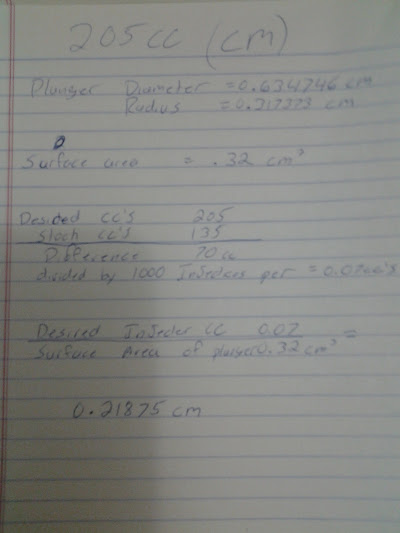 205cc (cm)
Plunger Diameter = 0.634746 cm
Radius = 0.317373 cm
Surface area = .32 cm³
Desired CC's 205
Stock CC's 135
Difference 70cc
divided by 1000 Injections per = 0.07cc's
Desired Injector CC 0.07 =
Surface Area of plunger 0.32 cm³
0.21875 cm